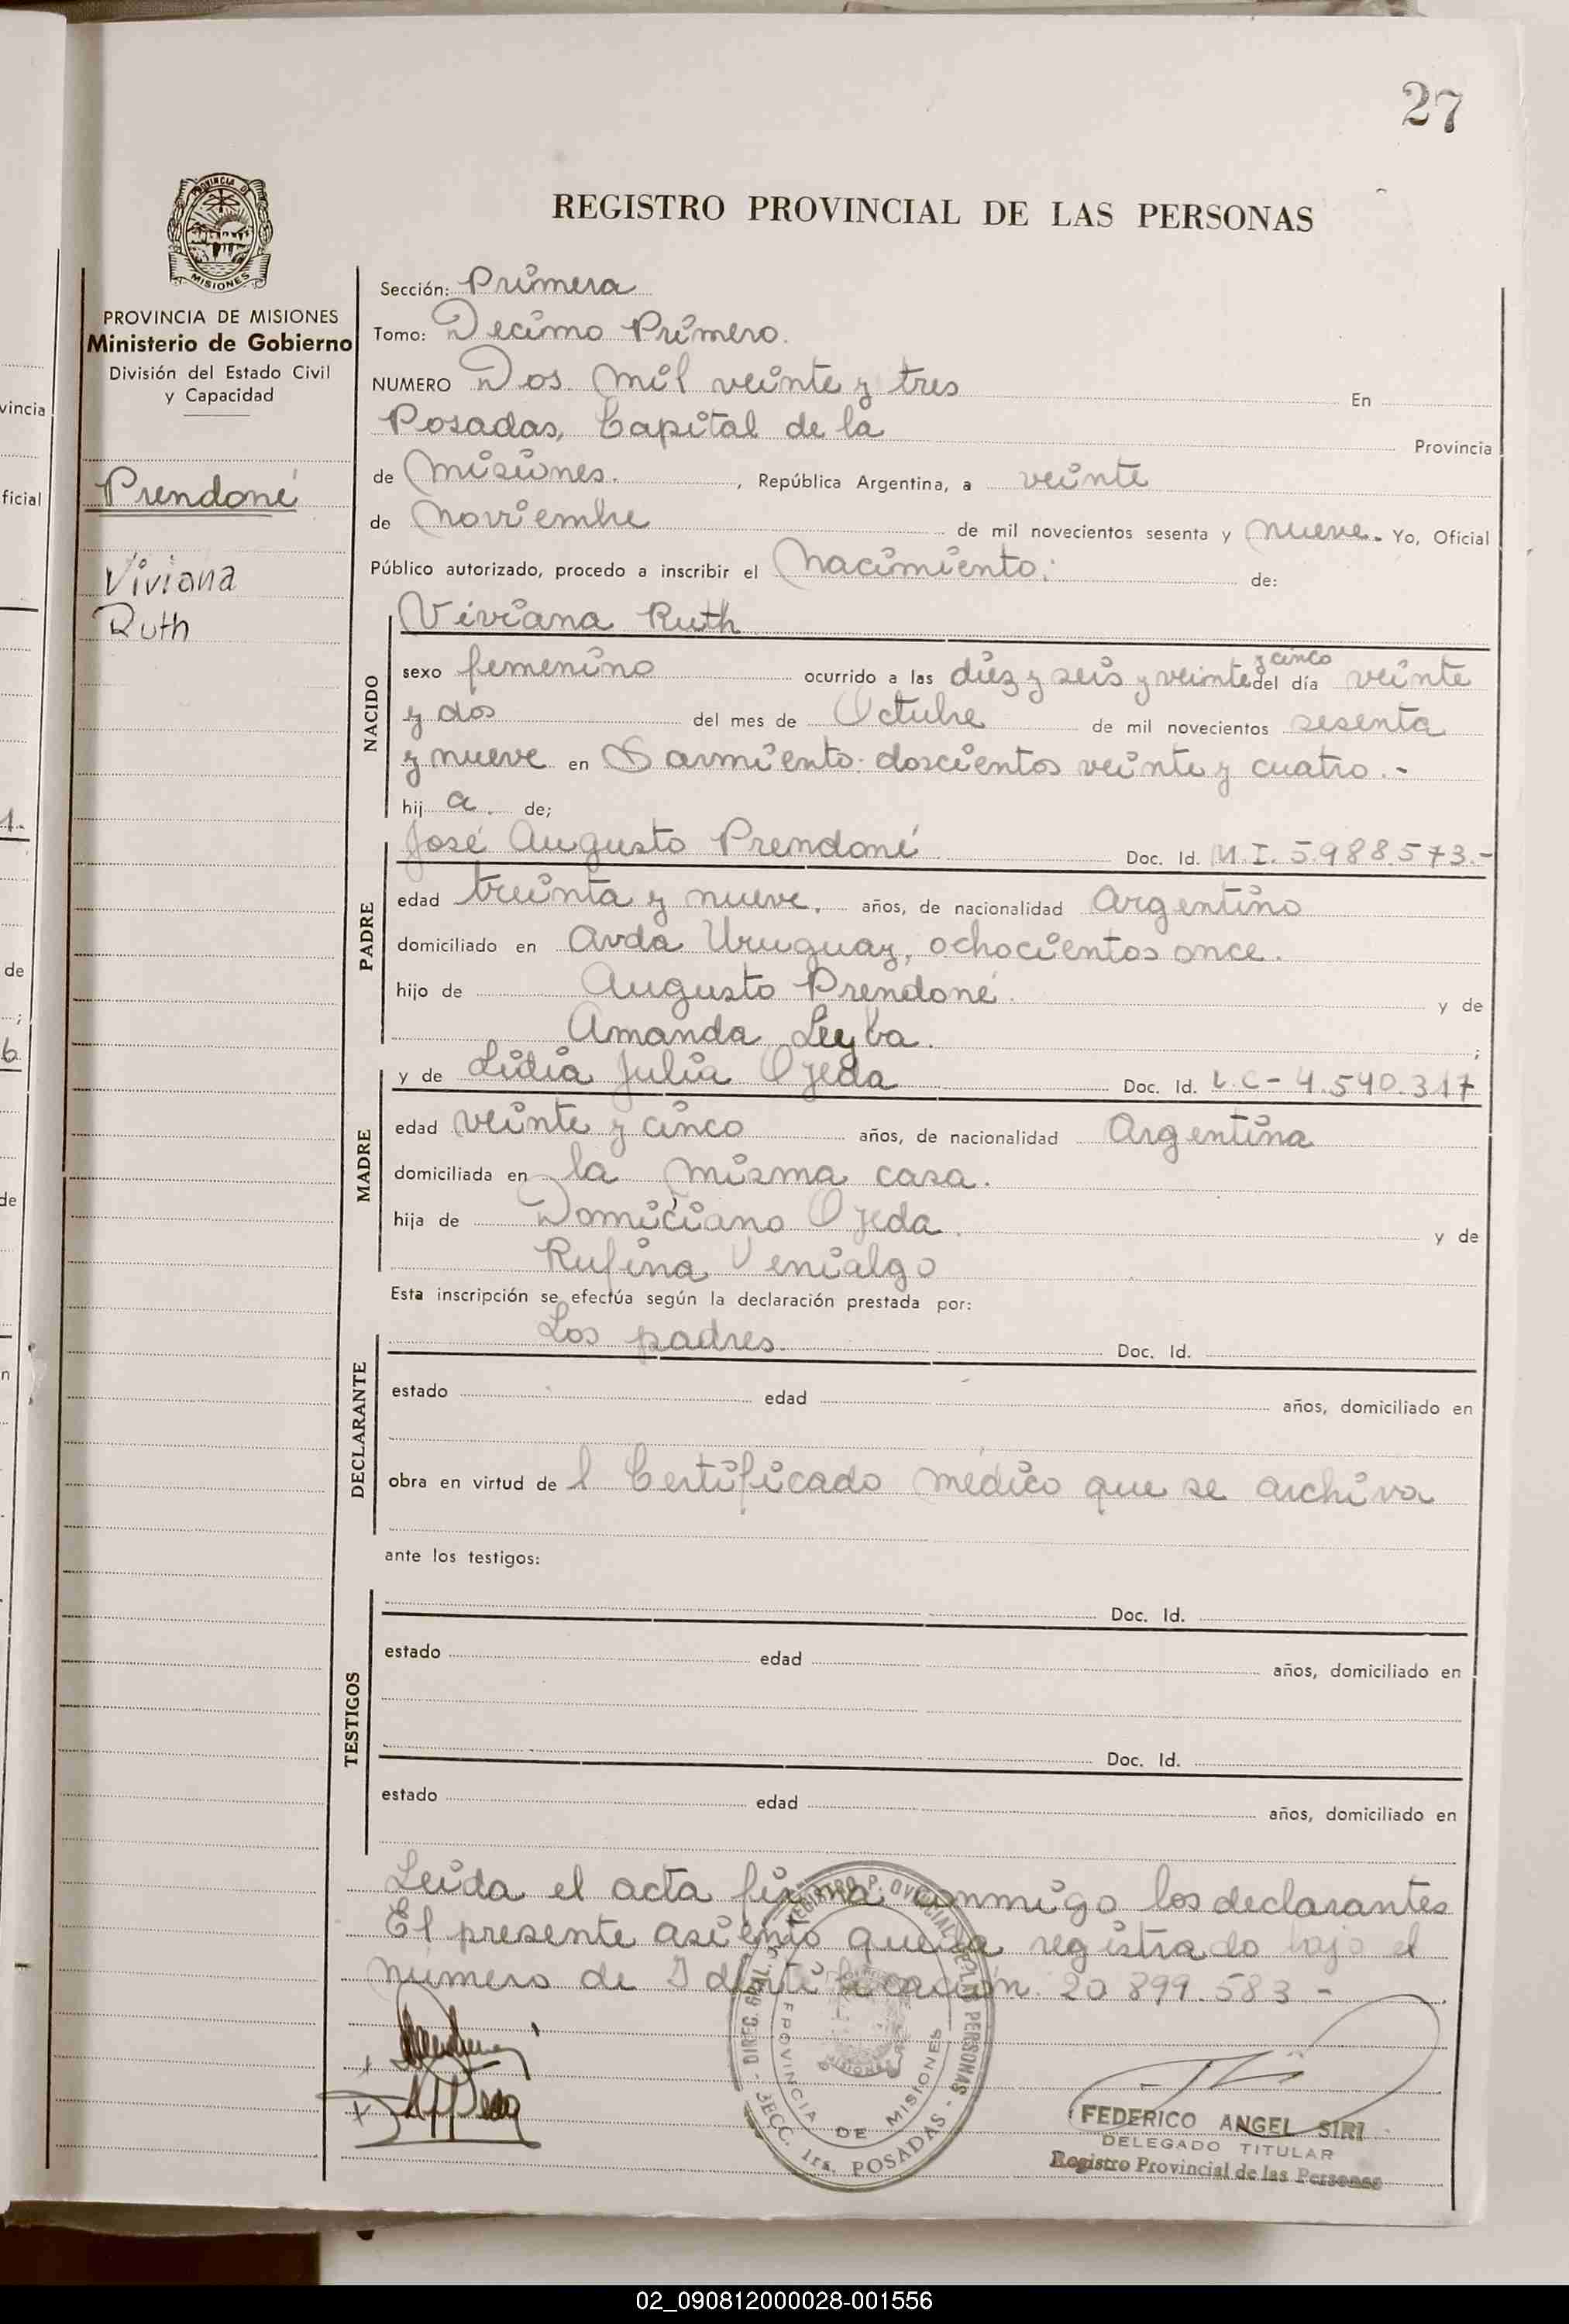 27
REGISTRO PROVINCIAL DE LAS PERSONAS
PROVINCIA DE
MISIONES
PROVINCIA DE MISIONES
Ministerio de Gobierno
División del Estado Civil
y Capacidad
Prendoné
Viviana
Ruth
Sección: Primera
Tomo: Decimo Primero.
NUMERO Dos mil veinte y tres En
Posadas, Capital de la Provincia
de Misiones. , República Argentina, a veinte
de noviembre de mil novecientos sesenta y nueve. Yo, Oficial
Público autorizado, procedo a inscribir el Nacimiento. de:
NACIDO
Viviana Ruth
sexo femenino ocurrido a las diez y seis y veinte y cinco del día veinte
y dos del mes de Octubre de mil novecientos sesenta
y nueve en Sarmiento: doscientos veinte y cuatro.-
hij a. de;
PADRE
José Augusto Prendoné Doc. Id. M.I. 5.988.573.-
edad treinta y nueve. años, de nacionalidad Argentino
domiciliado en Avda Uruguay, ochocientos once.
hijo de Augusto Prendoné. y de
Amanda Leyba. ;
MADRE
y de Lidia Julia Ojeda Doc. Id. L.C- 4.540.317
edad veinte y cinco años, de nacionalidad Argentina
domiciliada en la misma casa.
hija de Domiciano Ojeda. y de
Rufina Venialgo
Esta inscripción se efectúa según la declaración prestada por:
DECLARANTE
Los padres. Doc. Id.
estado edad años, domiciliado en
obra en virtud de l Certificado médico que se archiva
ante los testigos:
TESTIGOS
Doc. Id.
estado edad años, domiciliado en
Doc. Id.
estado edad años, domiciliado en
Leida el acta firma conmigo los declarantes
El presente asiento queda registrado bajo el
número de Identificación. 20.899.583 -
DIREC. GRAL. REGISTRO P. OVINCIAL DE LAS PERSONAS - SECC. 1ra. POSADAS -
PROVINCIA DE MISIONES
FEDERICO ANGEL SIRI
DELEGADO TITULAR
Registro Provincial de las Personas
02_090812000028-001556
vincia
ficial
de
;
6
de
n